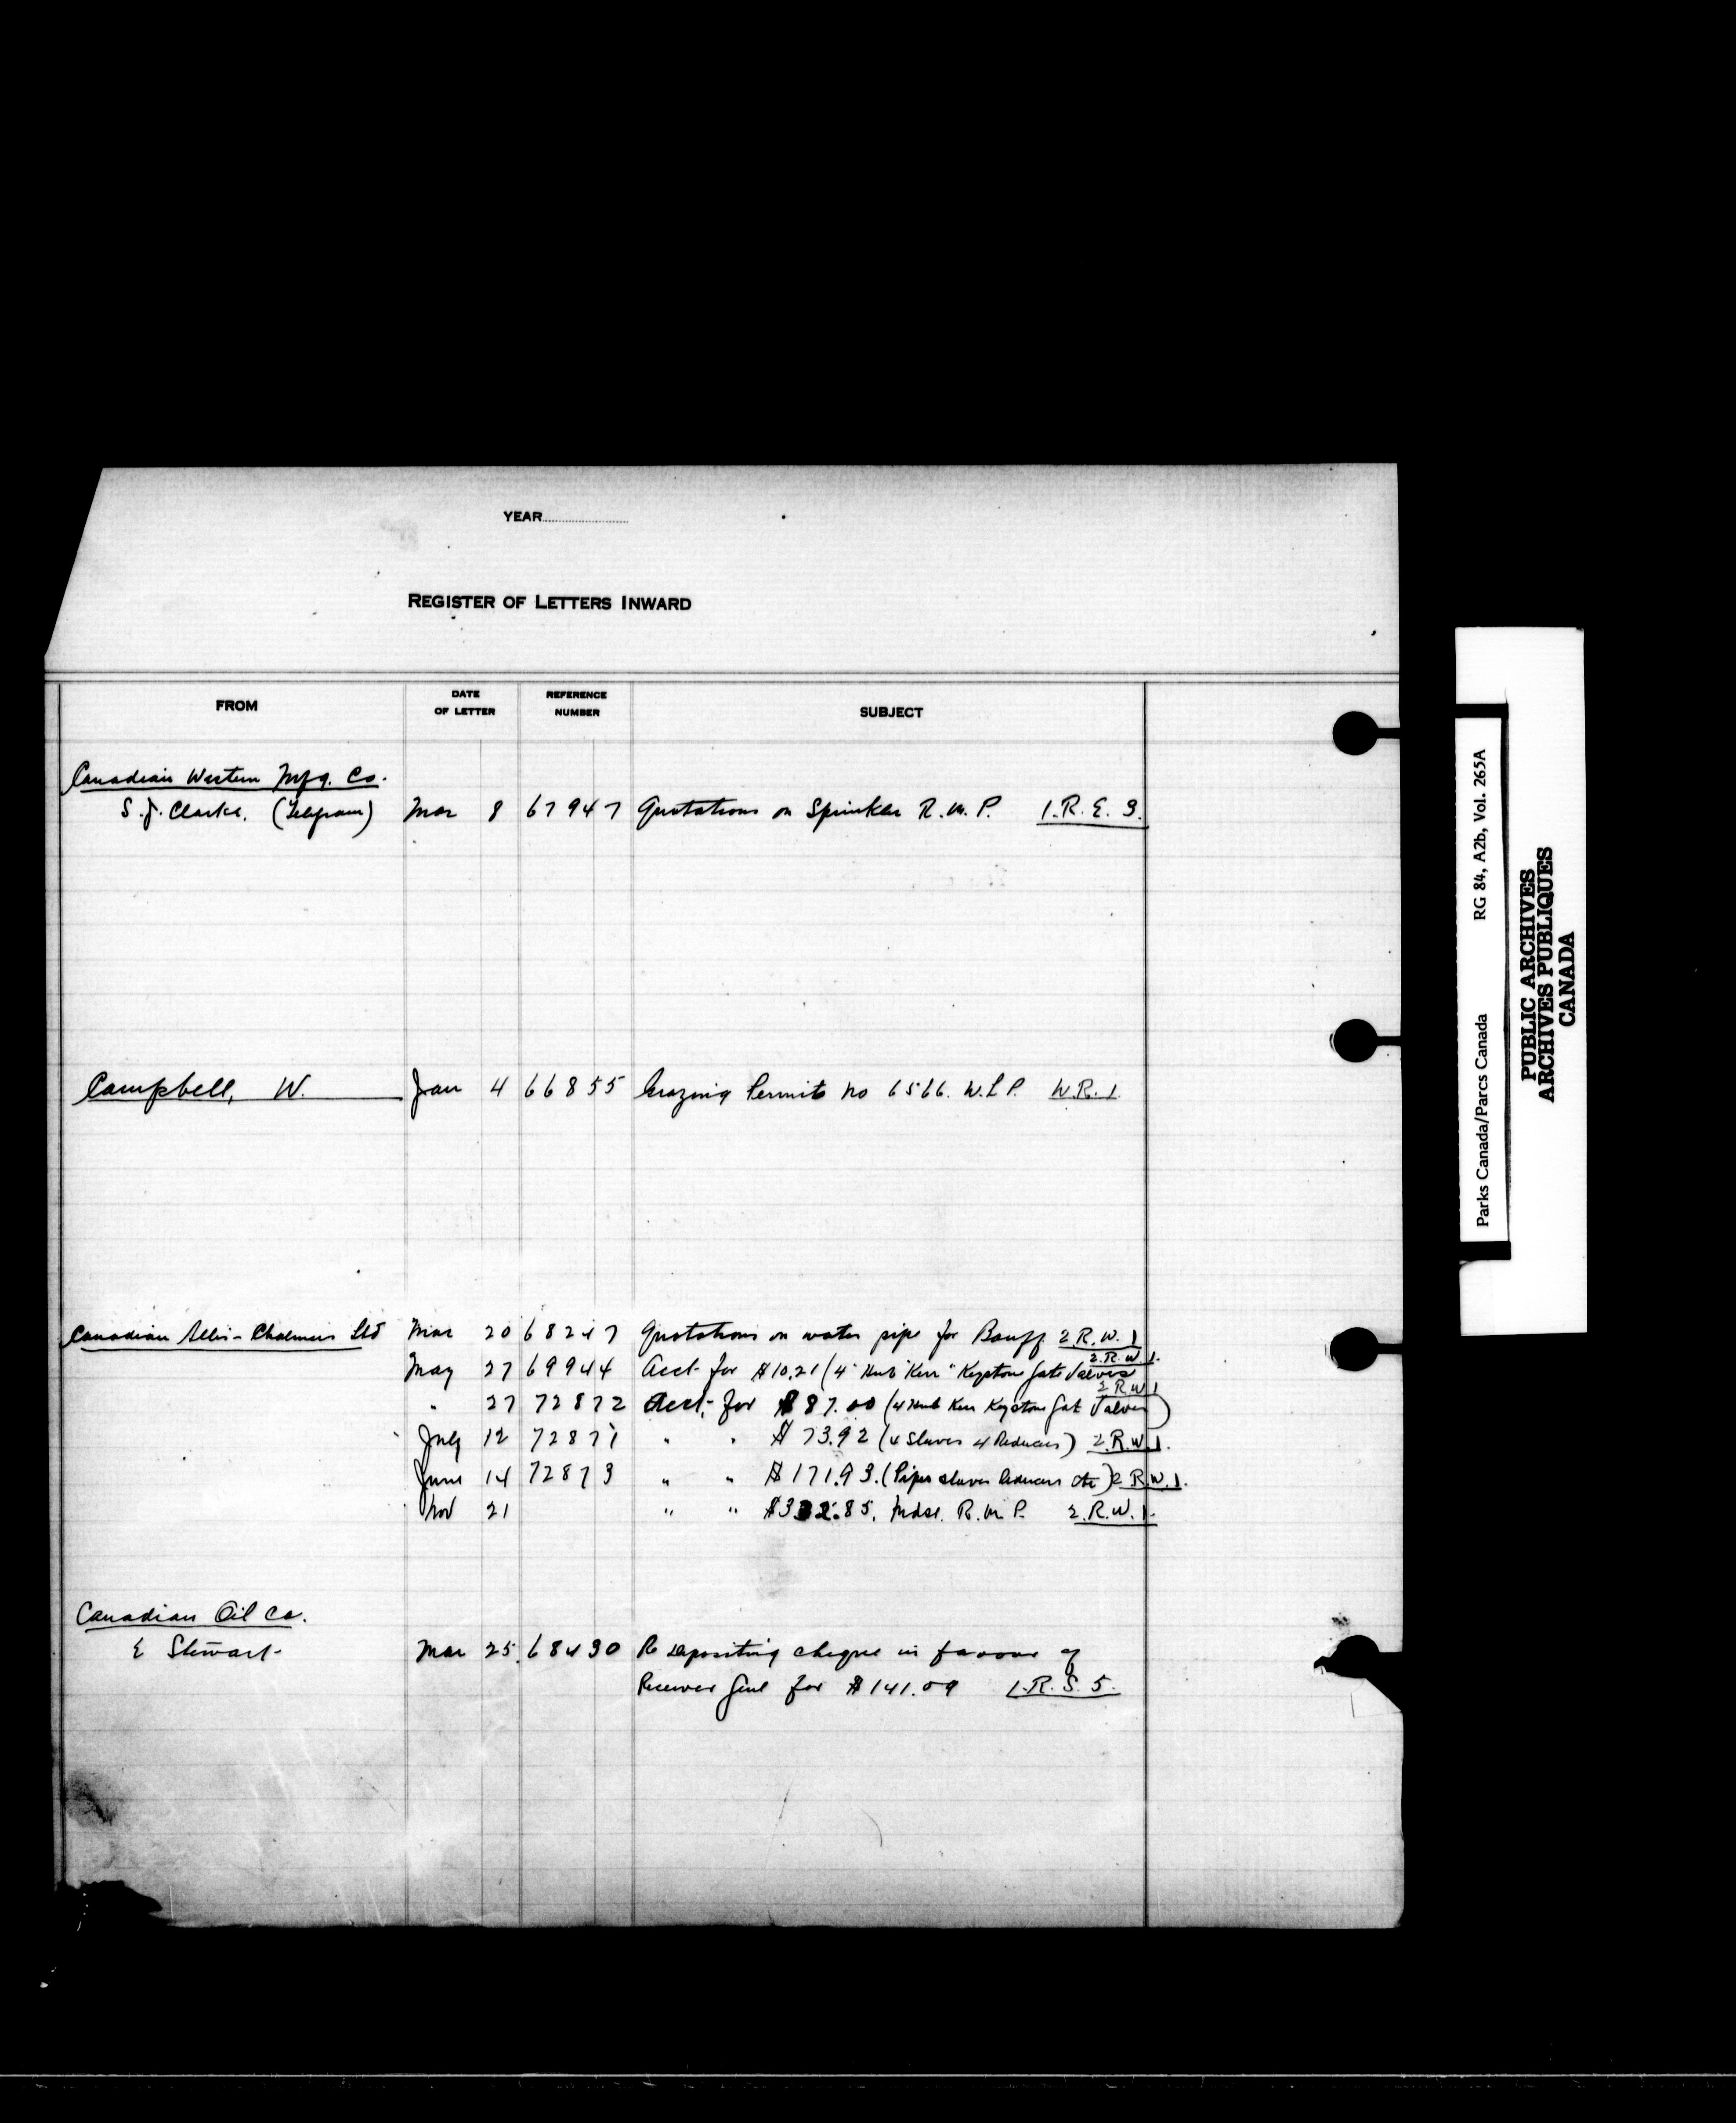 YEAR
REGISTER OF LETTERS INWARD
FROM DATE OF LETTER REFERENCE NUMBER SUBJECT
Canadian Western Mfg. Co.
S. J. Clarke. (Telegram) Mar 8 67947 Quotations on Sprinkler R.M.P. 1.R.E.3.
Campbell, W. Jan 4 66855 Grazing Permit No 6566. W.L.P. W.R.1
Canadian Allis-Chalmers Ltd Mar 20 68247 Quotations on water pipe for Banff 2.R.W.1
2.R.W.1.
May 27 69944 Acct for $10.21 (4" Hub "Kerr" Keystone Gate Valves
2.R.W.1
" 27 72872 Acct. for $87.00 (4 Hub Kerr Keystone Gate Valves)
July 12 72871 " " $73.92 (4 Sleeves 4 Reducers) 2.R.W.1.
June 14 72873 " " $171.93. (Pipes sleeves Reducers etc) 2.R.W.1.
Nov 21 " " $332.85. Mdse. R.M.P. 2.R.W.1.
Canadian Oil Co.
E Stewart Mar 25. 68430 Re depositing cheque in favour of
Receiver Genl for $141.09 1.R.S.5.
Parks Canada/Parcs Canada RG 84, A2b, Vol. 265A
PUBLIC ARCHIVES
ARCHIVES PUBLIQUES
CANADA